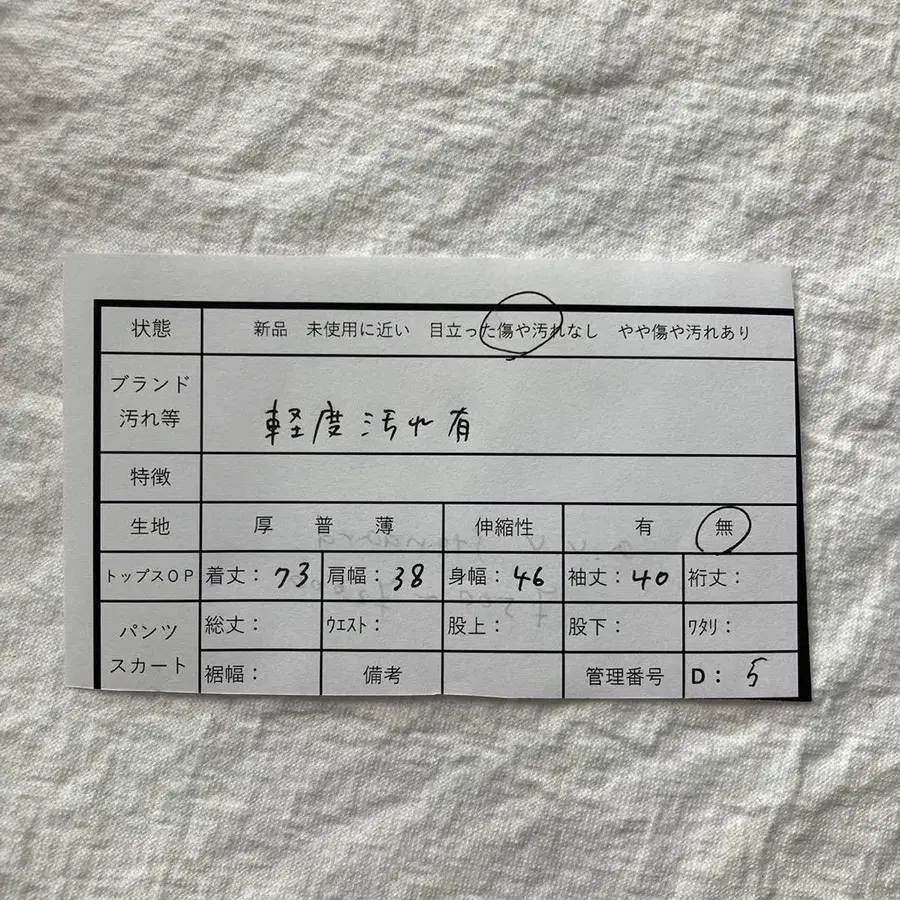 状態 新品 未使用に近い 目立った傷や汚れなし やや傷や汚れあり
ブランド
汚れ等
軽度汚れ有
特徴
生地 厚 普 薄 伸縮性 有 無
トップスOP 着丈：73 肩幅：38 身幅：46 袖丈：40 裄丈：
パンツ
スカート
総丈： ウエスト： 股上： 股下： ワタリ：
裾幅： 備考 管理番号 D：5